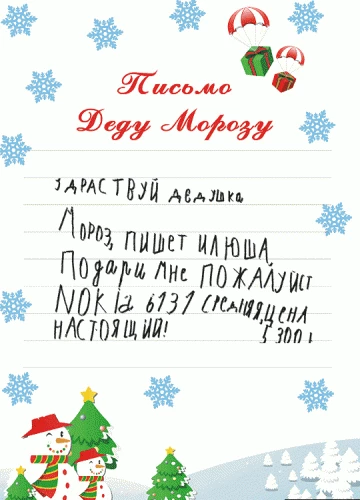 Письмо
Деду Морозу
ЗДРАСТВУЙ ДЕДУШКА
МОРОЗ, ПИШЕТ ИЛЮША,
ПОДАРИ МНЕ ПОЖАЛУЙСТ
NOKIA 6131 СРЕДНЯЯ, ЦЕНА
НАСТОЯЩИЙ! 5300